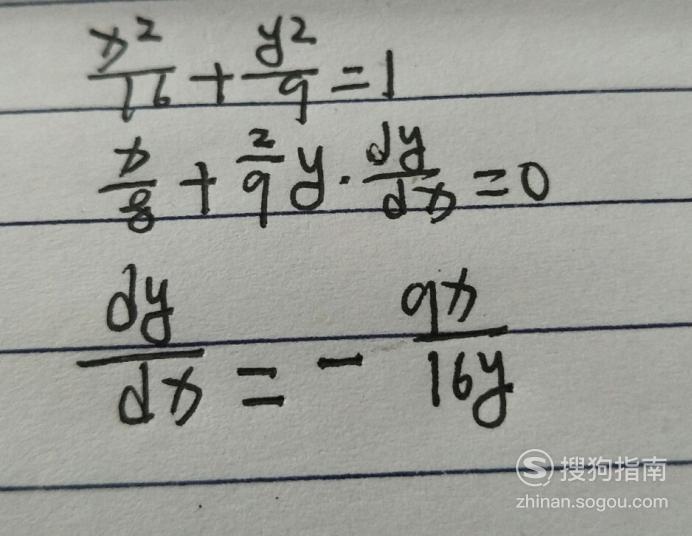 x²/16 + y²/9 = 1
x/8 + 2/9 y · dy/dx = 0
dy/dx = - 9x/16y
S 搜狗指南
zhinan.sogou.com